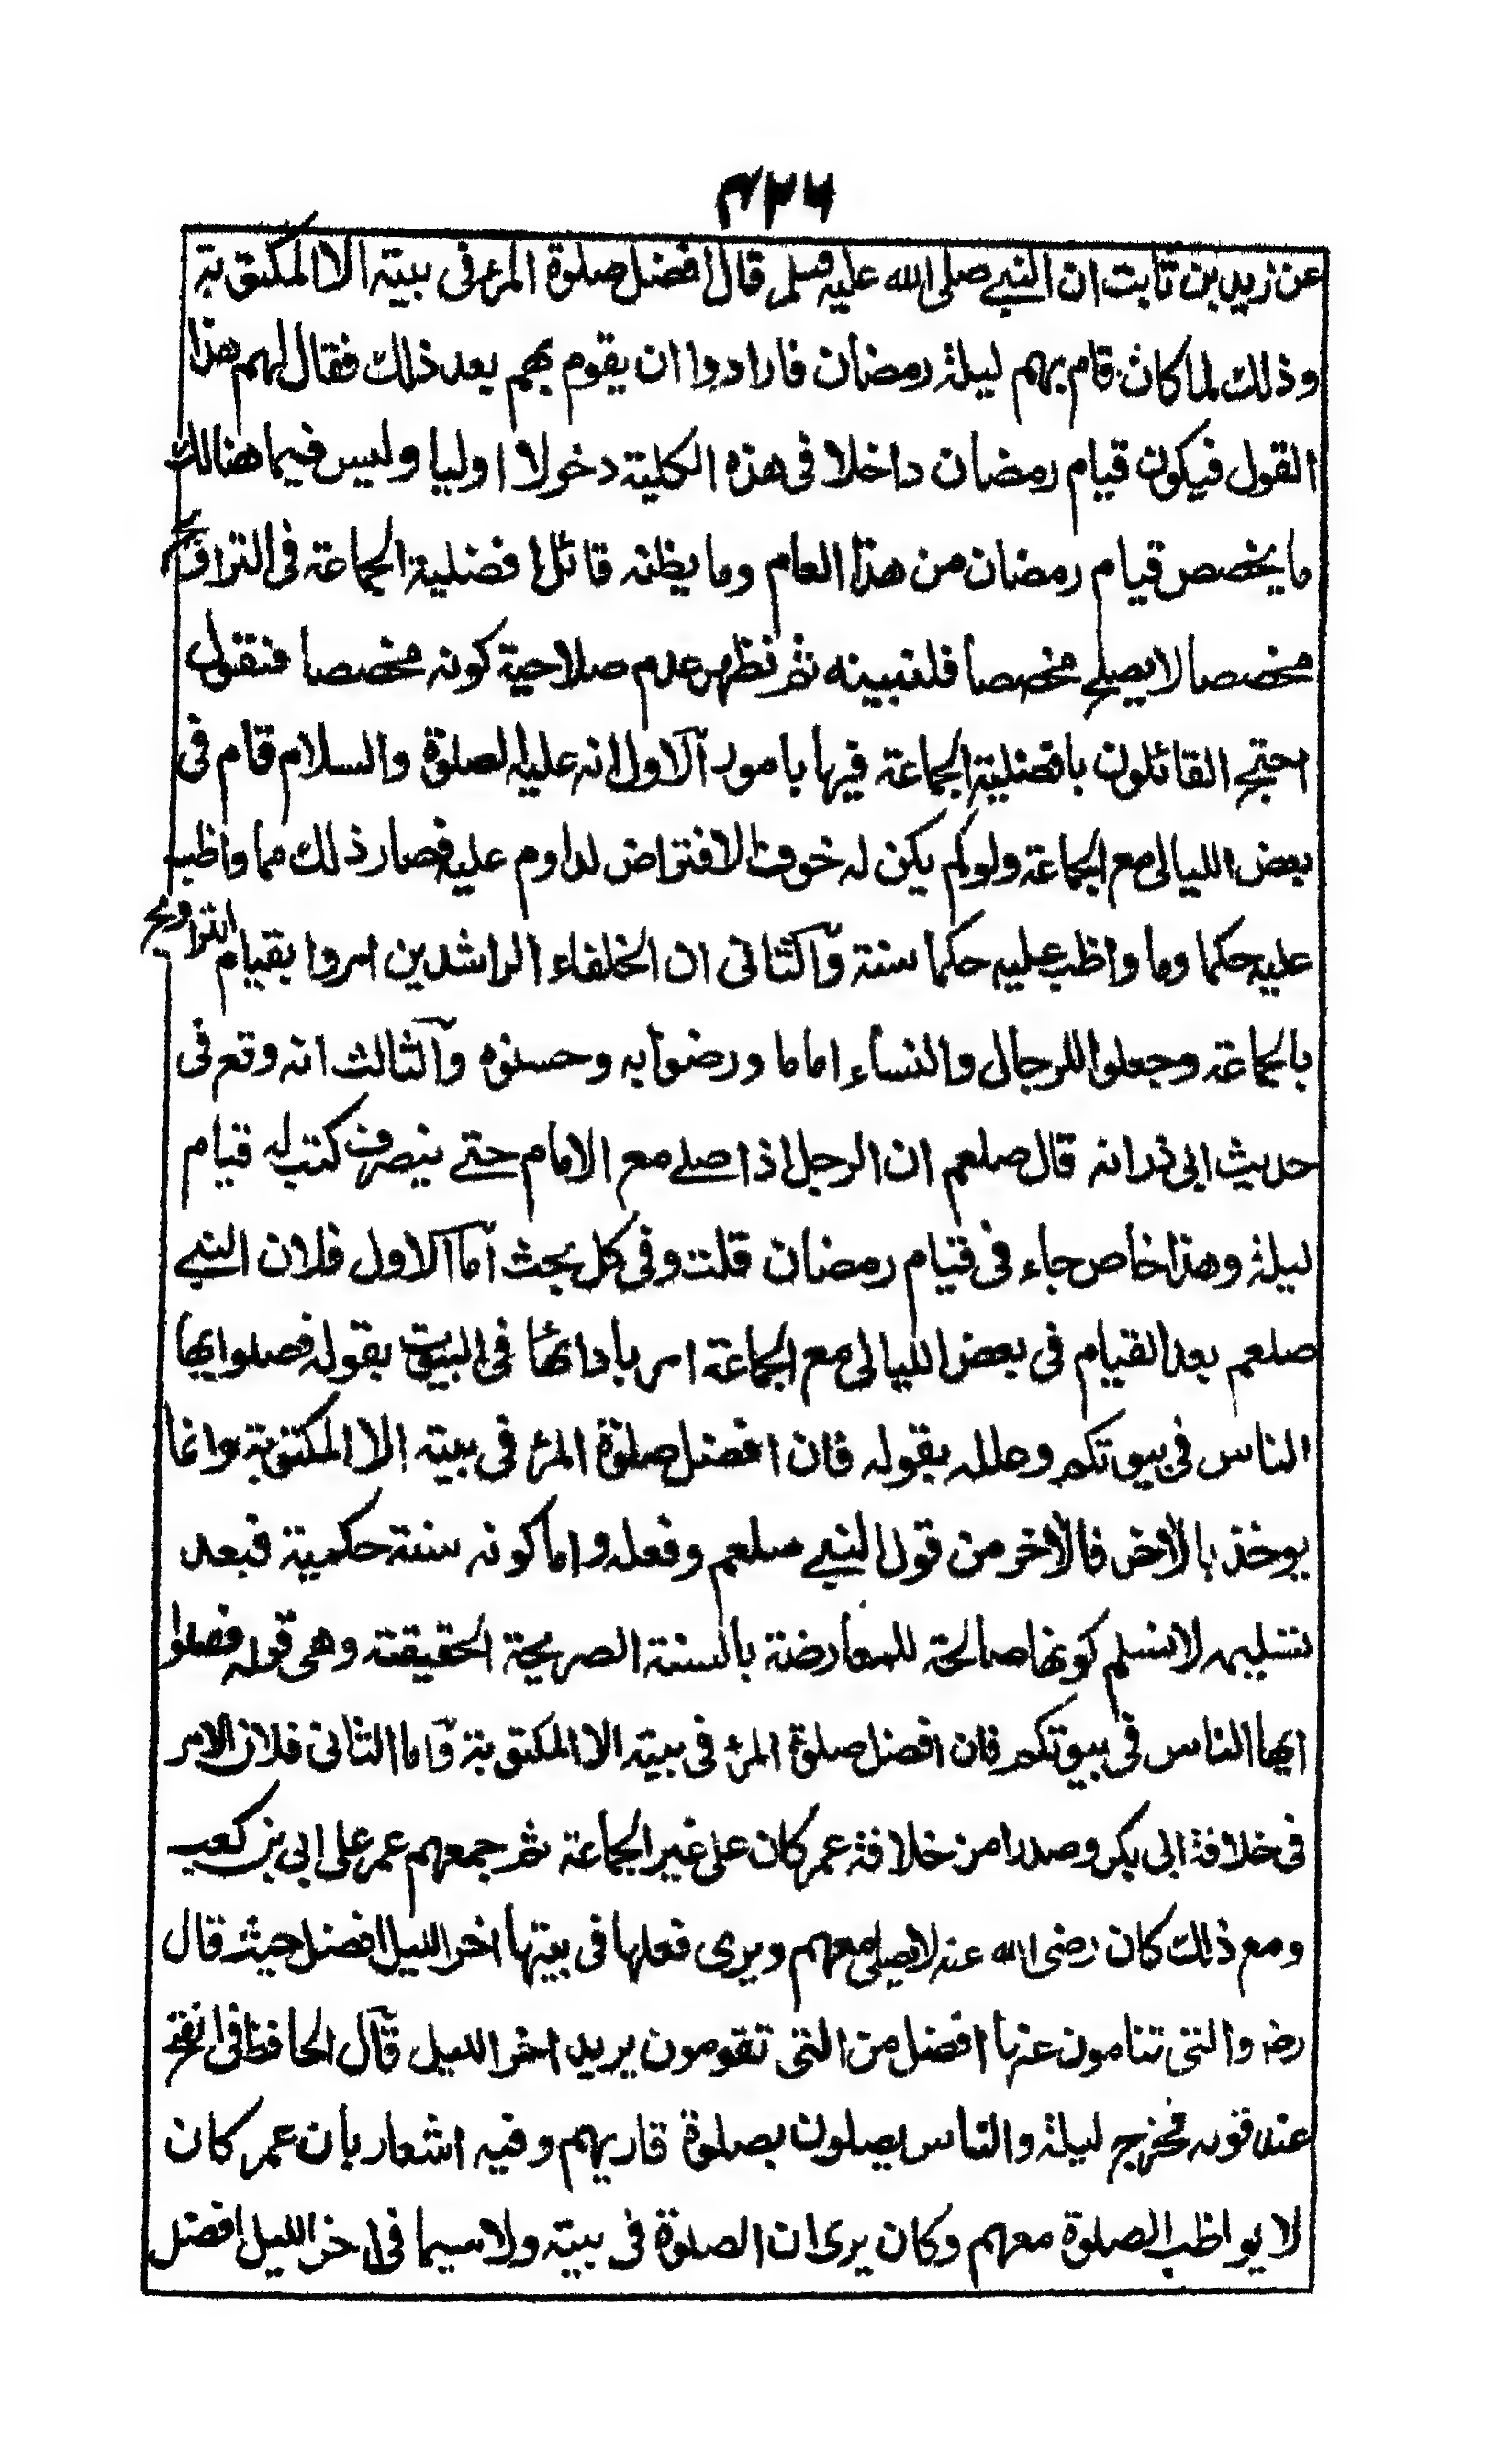 ٣٢٦
عن زيد بن ثابت ان النبي صلى الله عليه وسلم قال افضل صلوة المرء في بيته الا المكتوبة
وذلك لما كان قام بهم ليلة رمضان فارادوا ان يقوم بهم بعد ذلك فقال لهم هذا
القول فيكون قيام رمضان داخلا في هذه الكلية دخولا اوليا وليس فيما هنالك
ما يخصص قيام رمضان من هذا العام وما يظنه قائل افضلية الجماعة في التراويح
مخصصا لا يصلح مخصصا فلنبينه ثم نظهر عدم صلاحية كونه مخصصا فنقول
احتج القائلون بافضلية الجماعة فيها بامور آلاول انه عليه الصلوة والسلام قام في
بعض الليالي مع الجماعة ولو لم يكن له خوف الافتراض لداوم عليه فصار ذلك مما واظب
عليه حكما وما واظب عليه حكما سنة وآلثاني ان الخلفاء الراشدين امروا بقيام التراويح
بالجماعة وجعلوا للرجال والنساء اماما ورضوا به وحسنوه وآلثالث انه وقع في
حديث ابي ذر انه قال صلعم ان الرجل اذا صلى مع الامام حتى ينصرف كتب له قيام
ليلة وهذا خاص جاء في قيام رمضان قلت وفي كل بحث آما الاول فلان النبي
صلعم بعد القيام في بعض الليالي مع الجماعة امر بادائها في البيوت بقوله فصلوا ايها
الناس في بيوتكم وعلله بقوله فان افضل صلوة المرء في بيته الا المكتوبة وانما
يوخذ بالآخر فالآخر من قول النبي صلعم وفعله واما كونه سنة حكمية فبعد
تسليمه لا نسلم كونها صالحة للمعارضة بالسنة الصريحة الحقيقة وهي قوله فصلوا
ايها الناس في بيوتكم فان افضل صلوة المرء في بيته الا المكتوبة وآما الثاني فلان الامر
في خلافة ابي بكر وصدرا من خلافة عمر كان على غير الجماعة ثم جمعهم عمر على ابي بن كعب
ومع ذلك كان رضي الله عنه لا يصلي معهم ويرى فعلها في بيتها اخر الليل افضل حيث قال
رضـ والتي تنامون عنها افضل من التي تقومون يريد اخر الليل قآل الحافظ في الفتح
عند قوله فخرج ليلة والناس يصلون بصلوة قاريهم وفيه اشعار بان عمر كان
لا يواظب الصلوة معهم وكان يرى ان الصلوة في بيته ولا سيما في اخر الليل افضل